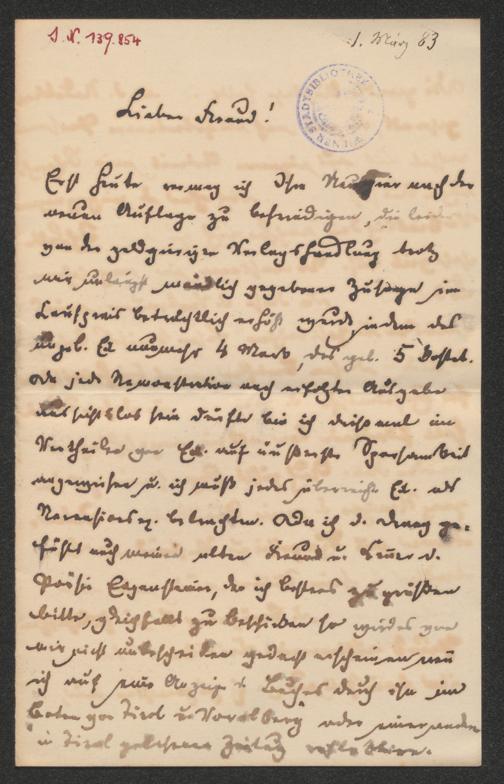 J. N. 139.854
1. März 83
STADTBIBLIOTHEK
Lieber Freund!
Erst heute vermag ich Ihre Neugier nach der
neuen Auflage zu befriedigen, die leider
von der geldgierigen Verlagshandlung trotz
mir unlängst mündlich gegebener Zusage im
Laufpreis beträchtlich erhöht wurde, indem das
ungeb. Ex. nunmehr 4 Mark, das geb. 5 kostet.
Da jede Remonstration nach erfolgter Ausgabe
aussichtslos sein dürfte bin ich diesmal im
Vertheilen von Ex. auf äußerste Sparsamkeit
angewiesen u. ich muß jedes überreichte Ex. als
Recensionsex. betrachten. Da ich d. Drang ge-
fühlt auch meinen alten Freund u. d.
Poesie, den ich bestens zu grüßen
bitte, gleichfalls zu beschicken so wird es von
mir nicht unbescheiden gedacht erscheinen wenn
ich auf eine Anzeige d. Buches durch ihn im
Boten von Tirol u. Vorarlberg oder einer andern
in Tirol gelesenen Zeitung reflektire.